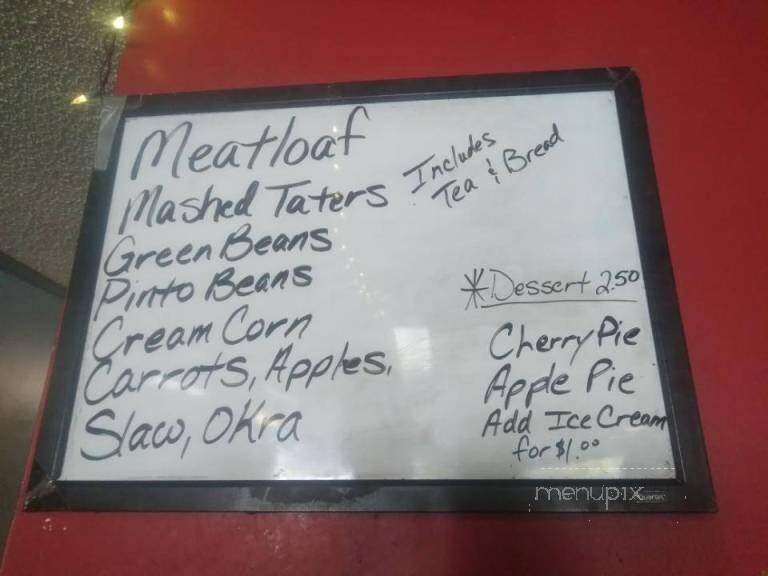 Meatloaf
Includes
Tea & Bread
Mashed Taters
Green Beans
Pinto Beans
Cream Corn
Carrots, Apples,
Slaw, OKra
*Dessert 2.50
Cherry Pie
Apple Pie
Add Ice Cream
for $1.00
menupix